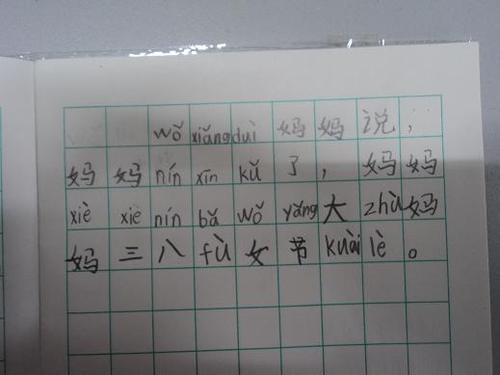 wǒ xiǎng duì 妈妈说，
妈妈 nín xīn kǔ 了，妈妈
xiè xiè nín bǎ wǒ yǎng 大 zhù 妈
妈三八 fù 女节 kuài lè 。